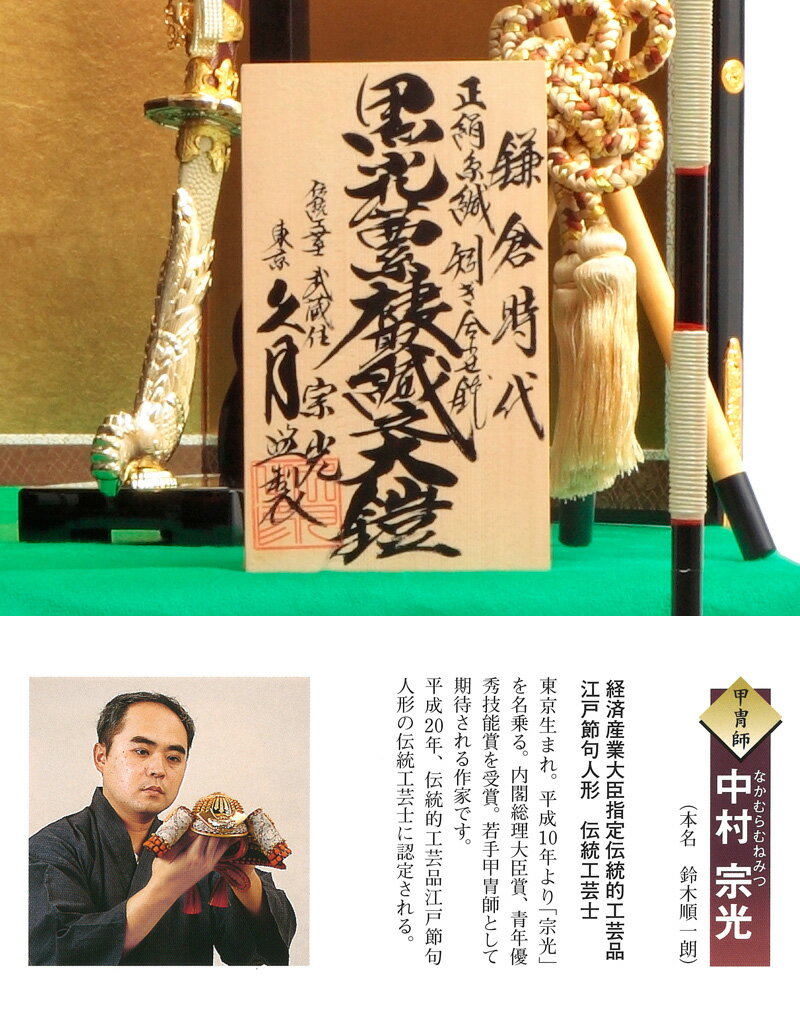 鎌倉時代
正絹糸縅 矧ぎ合せ鋲
之大鎧
武蔵住 宗光
東京 久月 謹製
甲冑師
中村 宗光
なかむらむねみつ
(本名 鈴木順一朗)
経済産業大臣指定伝統的工芸品
江戸節句人形 伝統工芸士
東京生まれ。平成10年より「宗光」
を名乗る。内閣総理大臣賞、青年優
秀技能賞を受賞。若手甲冑師として
期待される作家です。
平成20年、伝統的工芸品江戸節句
人形の伝統工芸士に認定される。